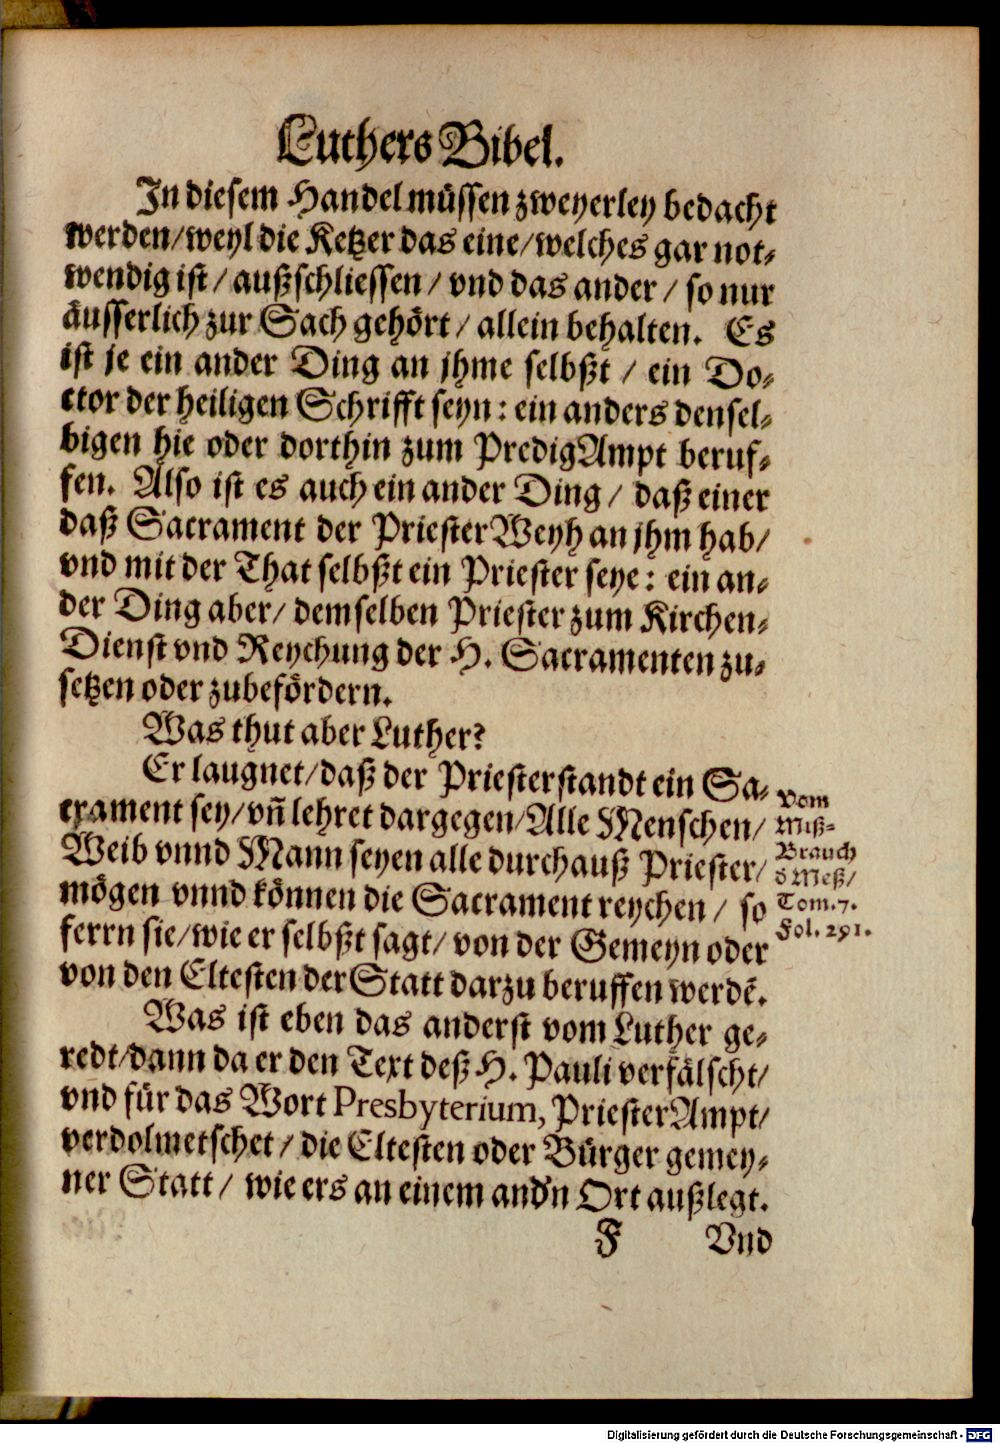 Luthers Bibel.
In diesem Handel müssen zweyerley bedacht
werden/weyl die Ketzer das eine/welches gar not-
wendig ist/ außschliessen/ vnd das ander/ so nur
äusserlich zur Sach gehört/ allein behalten. Es
ist je ein ander Ding an jhme selbßt / ein Do-
ctor der heiligen Schrifft seyn: ein anders densel-
bigen hie oder dorthin zum PredigAmpt beruf-
fen. Also ist es auch ein ander Ding/ daß einer
daß Sacrament der PriesterWeyh an jhm hab/
vnd mit der That selbßt ein Priester seye: ein an-
der Ding aber/ demselben Priester zum Kirchen-
Dienst vnd Reychung der H. Sacramenten zu-
setzen oder zubefördern.
Was thut aber Luther?
Er laugnet/daß der Priesterstandt ein Sa-
crament sey/vñ lehret dargegen/Alle Menschen/
Weib vnnd Mann seyen alle durchauß Priester/
mögen vnnd können die Sacrament reychen/ so
ferrn sie/wie er selbßt sagt/ von der Gemeyn oder
von den Eltesten der Statt darzu beruffen werdẽ.
vom
Miß-
Brauch
d Meß/
Tom. 7.
Fol. 291.
Was ist eben das anderst vom Luther ge-
redt/dann da er den Text deß H. Pauli verfälscht/
vnd für das Wort Presbyterium, PriesterAmpt/
verdolmetschet/ die Eltesten oder Bürger gemey-
ner Statt/ wie ers an einem and'n Ort außlegt.
F Vnd
Digitalisierung gefördert durch die Deutsche Forschungsgemeinschaft - DFG